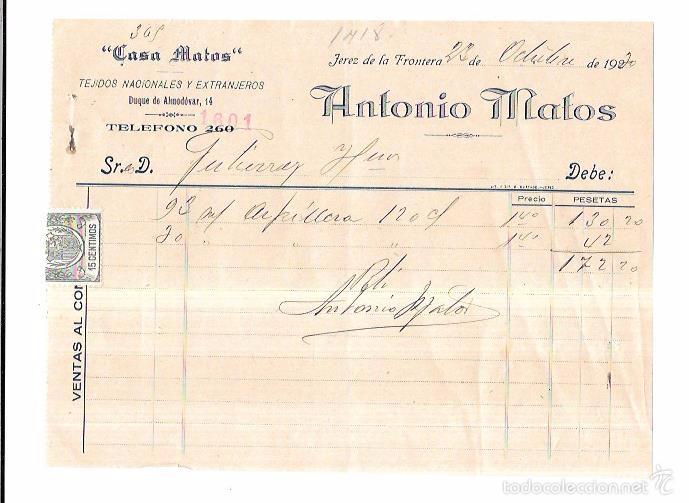 365
1418
"Casa Matos"
Jerez de la Frontera 23 de Octubre de 1930
TEJIDOS NACIONALES Y EXTRANJEROS
Duque de Almodóvar, 14
Antonio Matos
1601
TELEFONO 260
Sres. D. Gutierrez Hnos Debe:
Precio PESETAS
93 mt Arpillera 120 c/ 1'40 130 20
30 " " " 1'40 42
172 20
15 CENTIMOS
Antonio Matos
VENTAS AL CON
todocoleccion